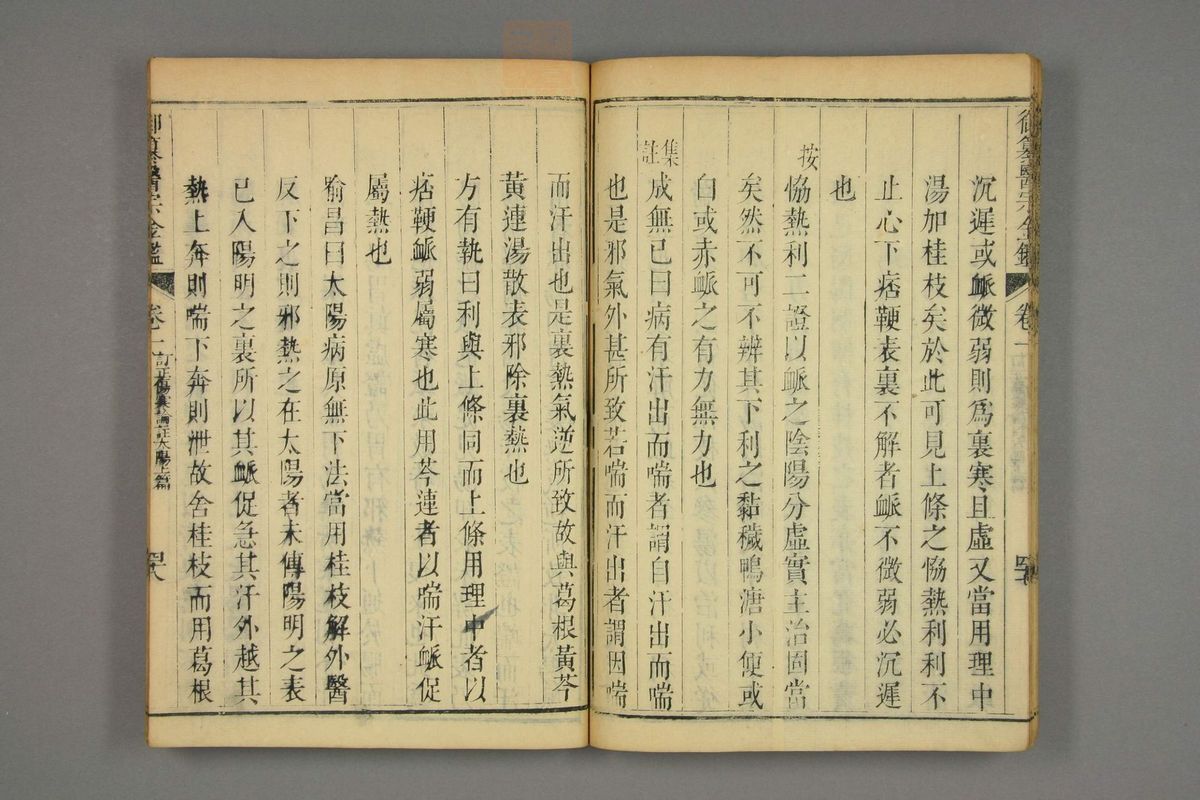 沉遲或衇微弱則爲裏寒且虛又當用理中
湯加桂枝矣於此可見上條之恊熱利利不
止心下痞鞕表裏不解者衇不微弱必沉遲
也
按
恊熱利二證以衇之陰陽分虛實主治固當
矣然不可不辨其下利之黏穢鴨溏小便或
白或赤衇之有力無力也
集註
成無已曰病有汗出而喘者謂自汗出而喘
也是邪氣外甚所致若喘而汗出者謂因喘
而汗出也是裏熱氣逆所致故與葛根黃芩
黃連湯散表邪除裏熱也
方有執曰利與上條同而上條用理中者以
痞鞕衇弱屬寒也此用芩連者以喘汗衇促
屬熱也
喻昌曰太陽病原無下法當用桂枝解外醫
反下之則邪熱之在太陽者未傳陽明之表
已入陽明之裏所以其衇促急其汗外越其
熱上奔則喘下奔則泄故舍桂枝而用葛根
御纂醫宗金鑑
卷一
御纂醫宗金鑑
卷一
訂正傷寒論註太陽上篇
四十八